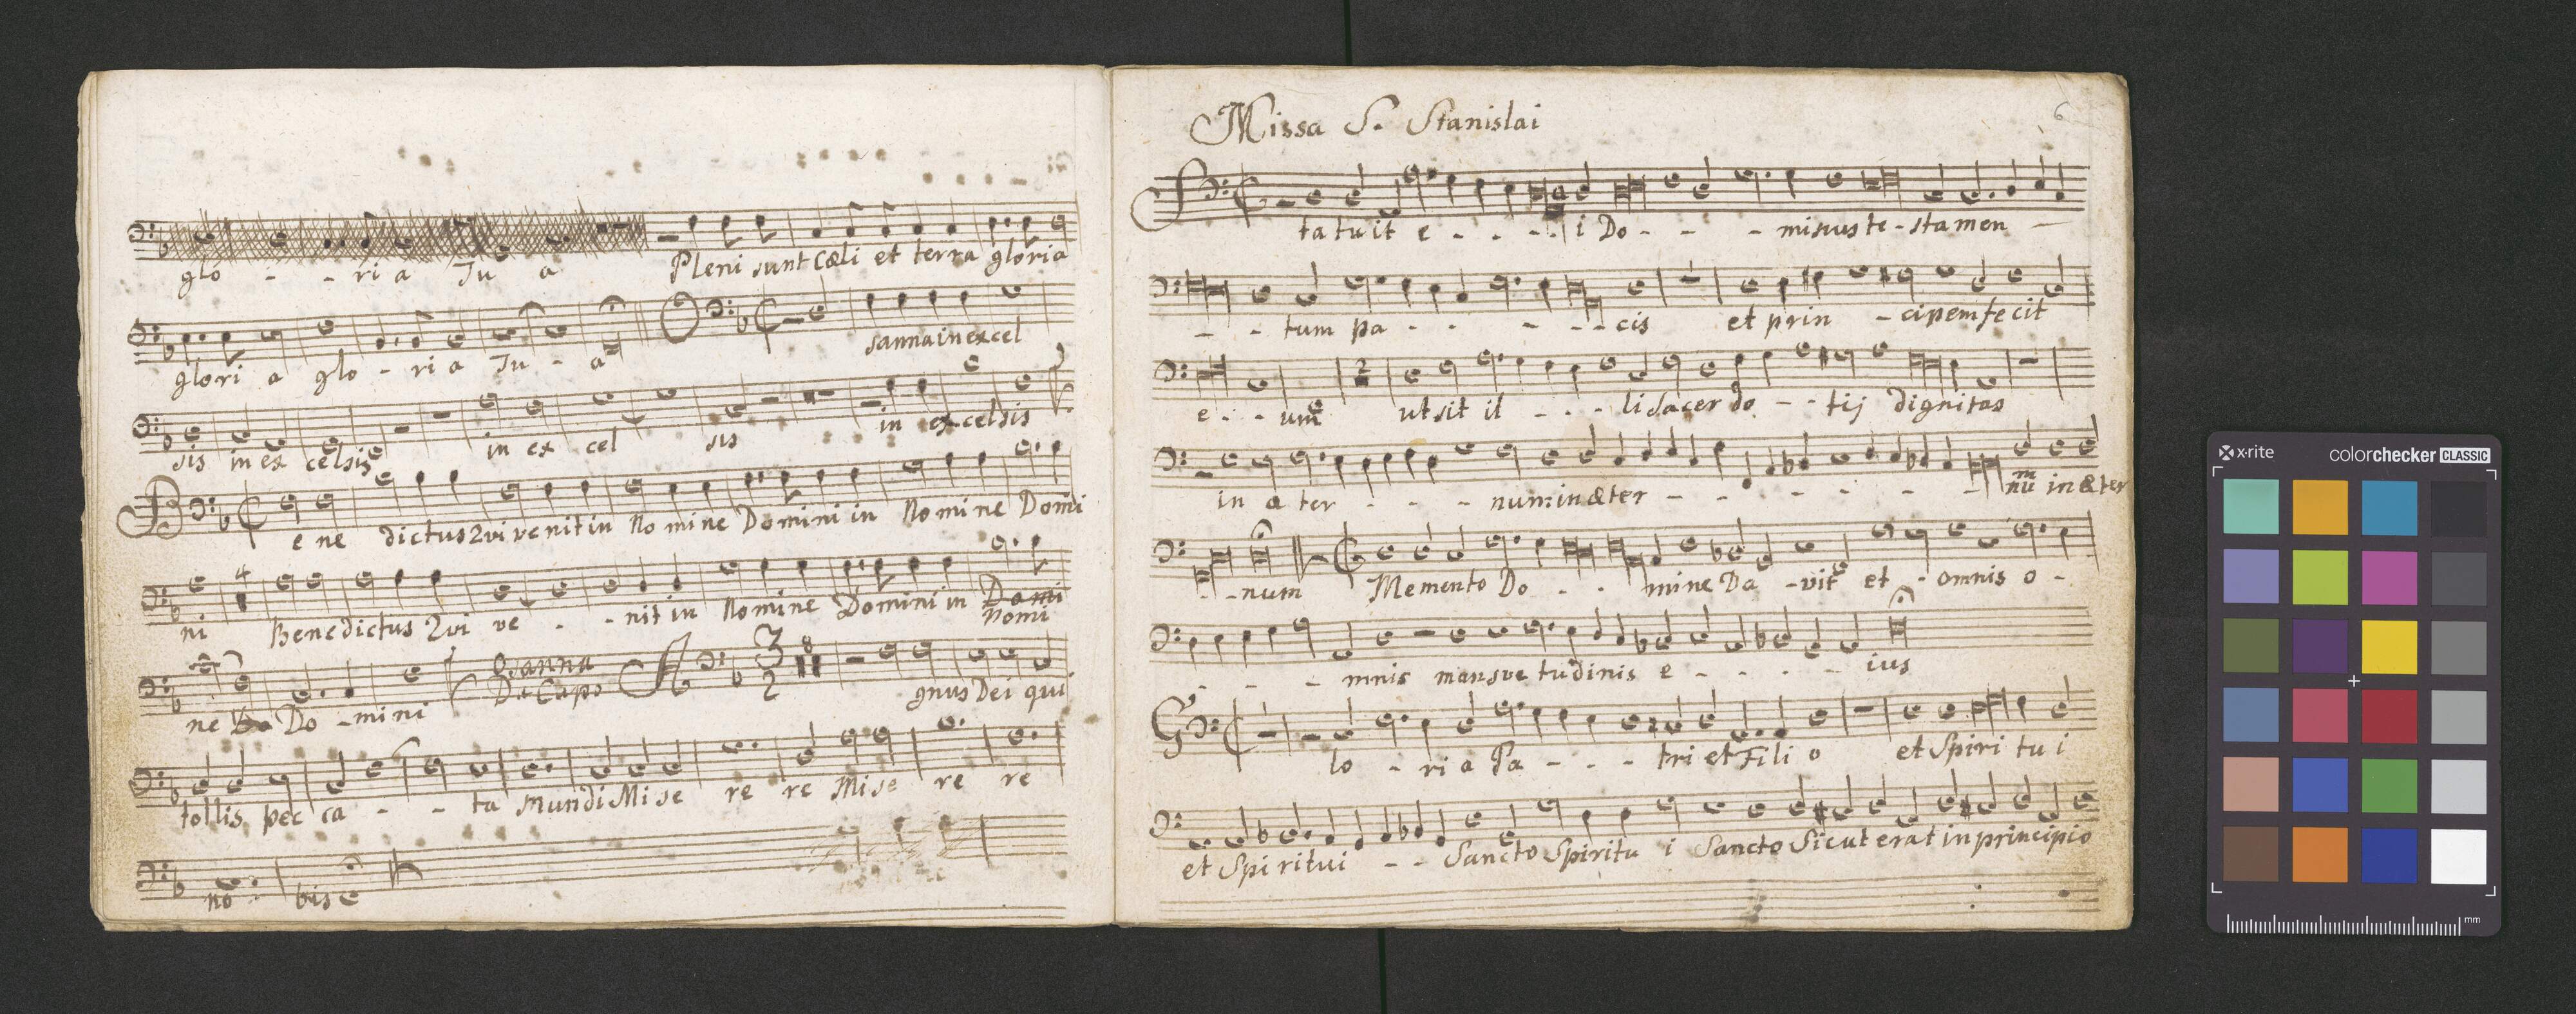 glo - - ri a Tu a Pleni sunt Cœli et terra gloria
glori a glo - ri a Tu - a O sanna in excel
sis in ex celsis in ex cel sis in ex-celsis
B e ne dictus 2vi venit in No mi ne Domini in No mi ne Domi
4
ni Benedictus 2vi ve - - - nit in Nomine Domini in Domi
Nomi
ne Do Do - mi ni Osanna
Da Capo A 3 2 8 gnus Dei qui
tollis pec ca - - ta Mundi Mi se re re Mise re re
no : bis
Missa S. Stanislai
6
S ta tu it e - - - - i Do - - - minus te - sta men -
- - tum pa - - - - - cis et prin - cipem fecit
2
e - - um ut sit il - - - li sacer do - - tij dignitas
in æ ter - - - num: in æter - - - - - - - nū in æter
- - num Memento Do - - mine Da - vit et - omnis o -
- - - mnis mansve tudinis e - - - - ius
G lo - ri a Pa - - - tri et Fili o et Spiri tu i
et Spi ritui - - Sancto Spiritu i Sancto Sicut erat in principio
x·rite
colorchecker CLASSIC
mm